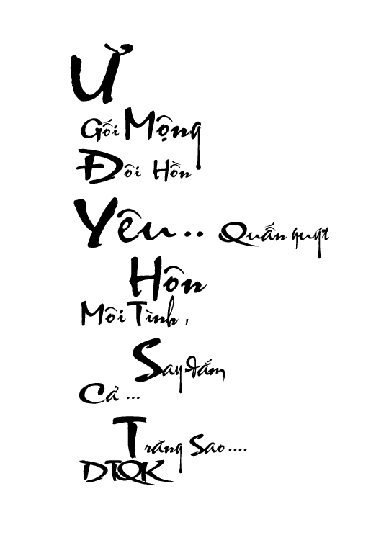 Ừ
Gối Mộng
Đôi Hồn
Yêu.. Quấn quýt
Hôn
Môi Tình,
Say đắm
Cả ...
Trăng Sao....
DTQK